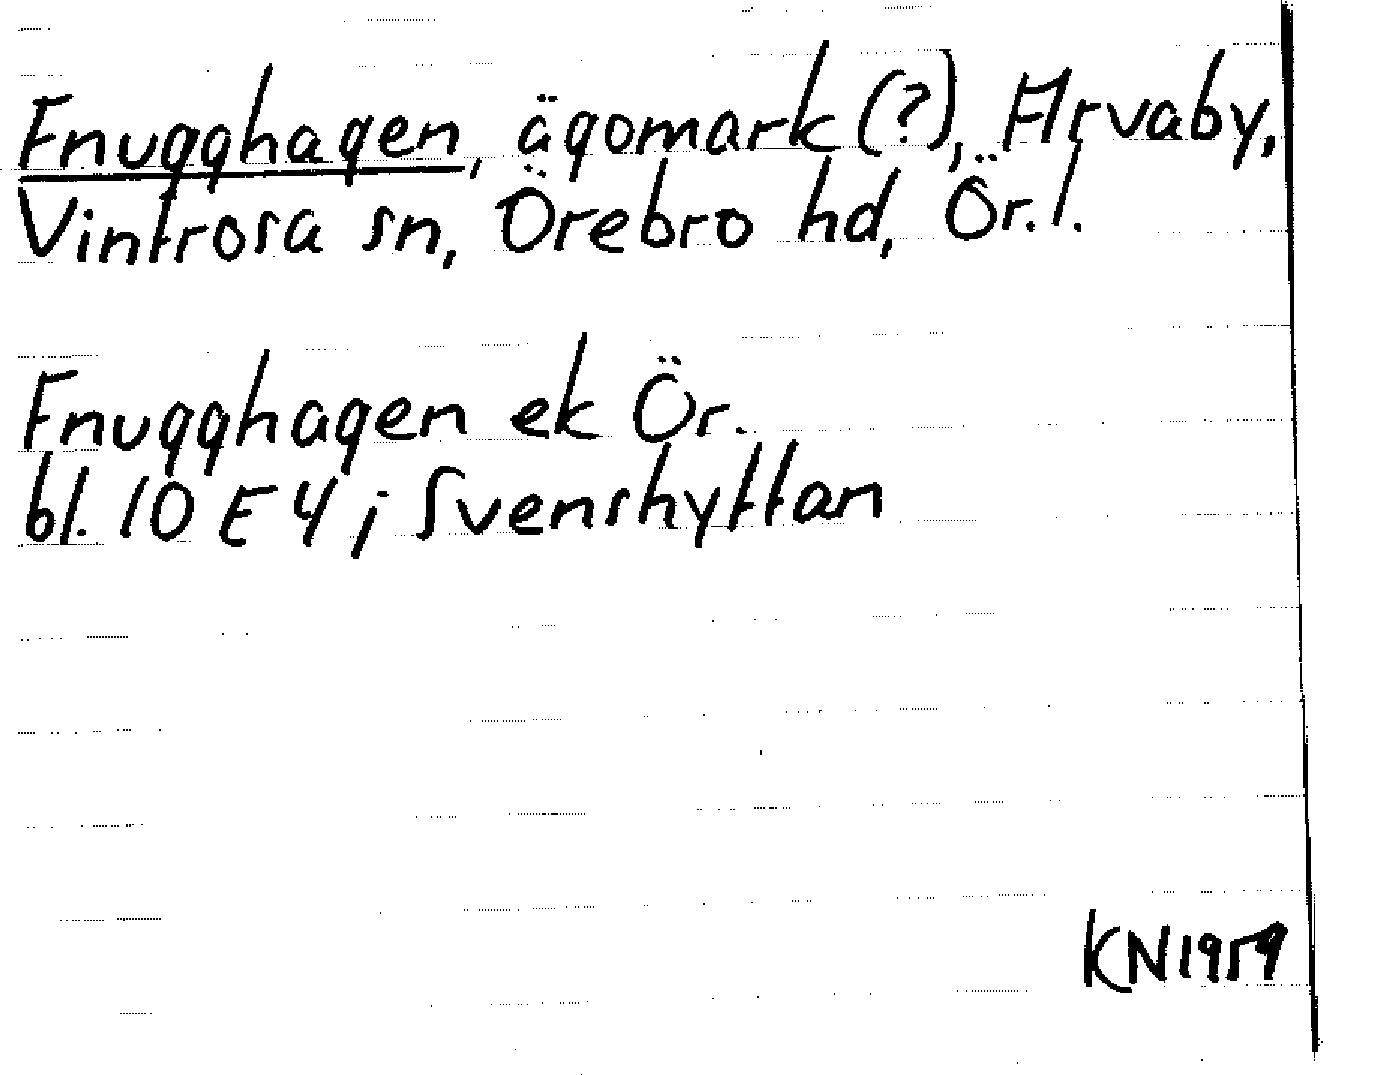 Fnugghagen, ägomark (?), Arvaby,
Vintrosa sn, Örebro hd, Ör. l.
Fnugghagen ek Ör.
bl. 10 E 4 j Svenshyttan
KN 1959